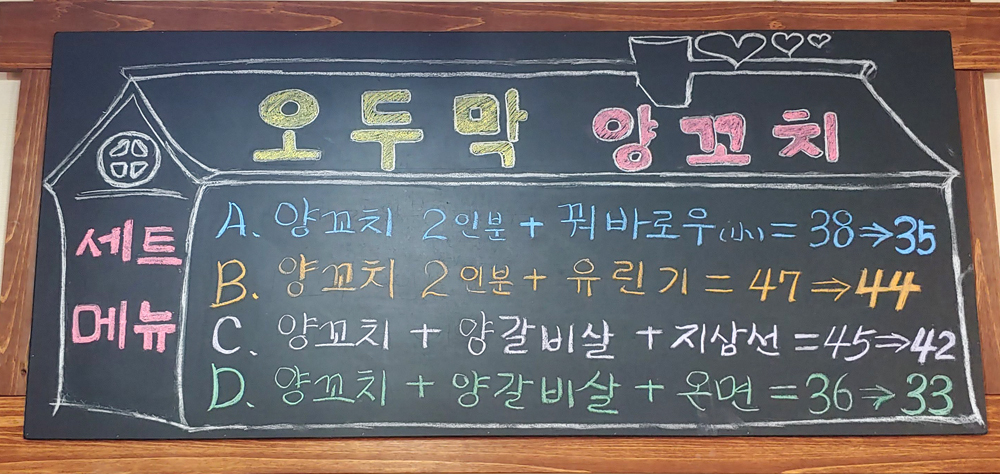 오두막 양꼬치
세트
메뉴
A. 양꼬치 2인분 + 꿔바로우(小) = 38⇒35
B. 양꼬치 2인분 + 유린기 = 47⇒44
C. 양꼬치 + 양갈비살 + 지삼선 = 45⇒42
D. 양꼬치 + 양갈비살 + 온면 = 36⇒33